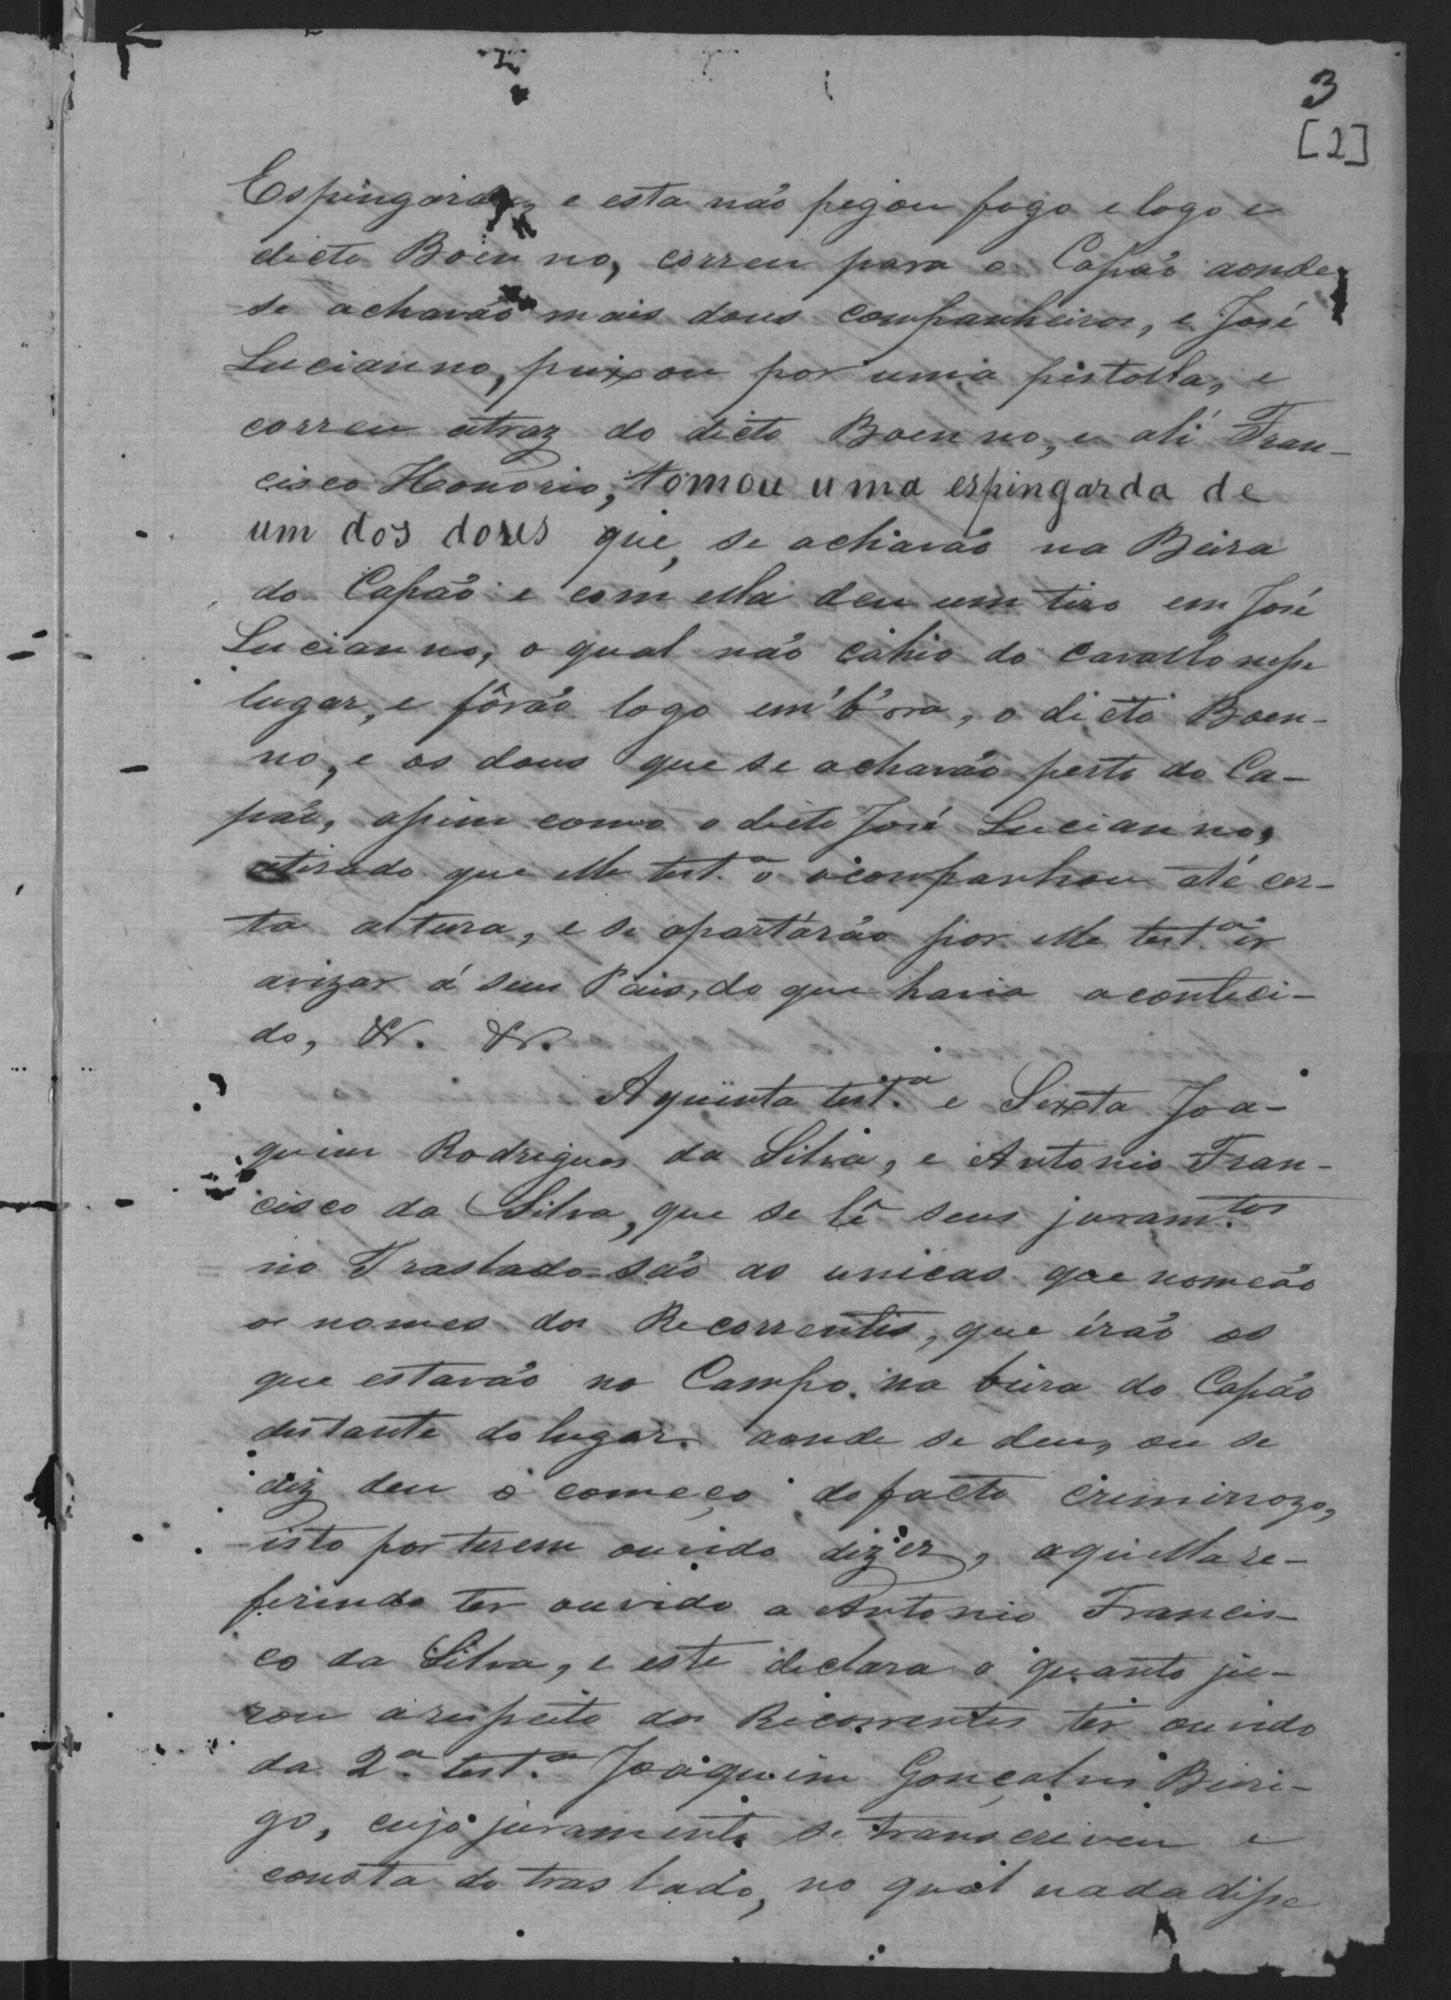 3
[2]
Espingarda, e esta não pegou fogo e logo e
dicto Boenno, correu para o Capão aonde
se achavão mais dous companheiros, e José
Lucianno, puixou por uma pistolla, e
correu atraz do dicto Boenno, e ali Fran-
cisco Honorio, tomou uma espingarda de
um dos dous que se achavão na Beira
do Capão e com ella deu um tiro em José
Lucianno, o qual não cahio do cavallo nesse
lugar, e fôrão logo em'b'ora, o dicto Boen-
no, e os dous que se achavão perto do Ca-
pão, assim como o dicto José Lucianno,
atirado que elle test.ª o acompanhou até cer-
ta altura, e se apartárão por elle test.ª ir
avizar á seus Pais, do que havia aconteci-
do, &. &.
A quinta test.ª e Sexta Joa-
quim Rodrigues da Silva, e Antonio Fran-
cisco da Silva, que se lê seus juram.tos
no Traslado são as unicas que nomeão
os nomes dos Recorrentes, que irão os
que estavão no Campo na beira do Capão
distante do lugar aonde se deu, ou se
diz deu o começo do facto criminozo,
isto por terem ouvido dizer, aquella re-
ferindo ter ouvido a Antonio Francis-
co da Silva, e este declara o quanto ju-
rou a respeito dos Recorrentes ter ouvido
da 2.ª test.ª Joaquim Gonçalves
go, cujo juramento se transcreveu e
consta do traslado, no qual nada disse